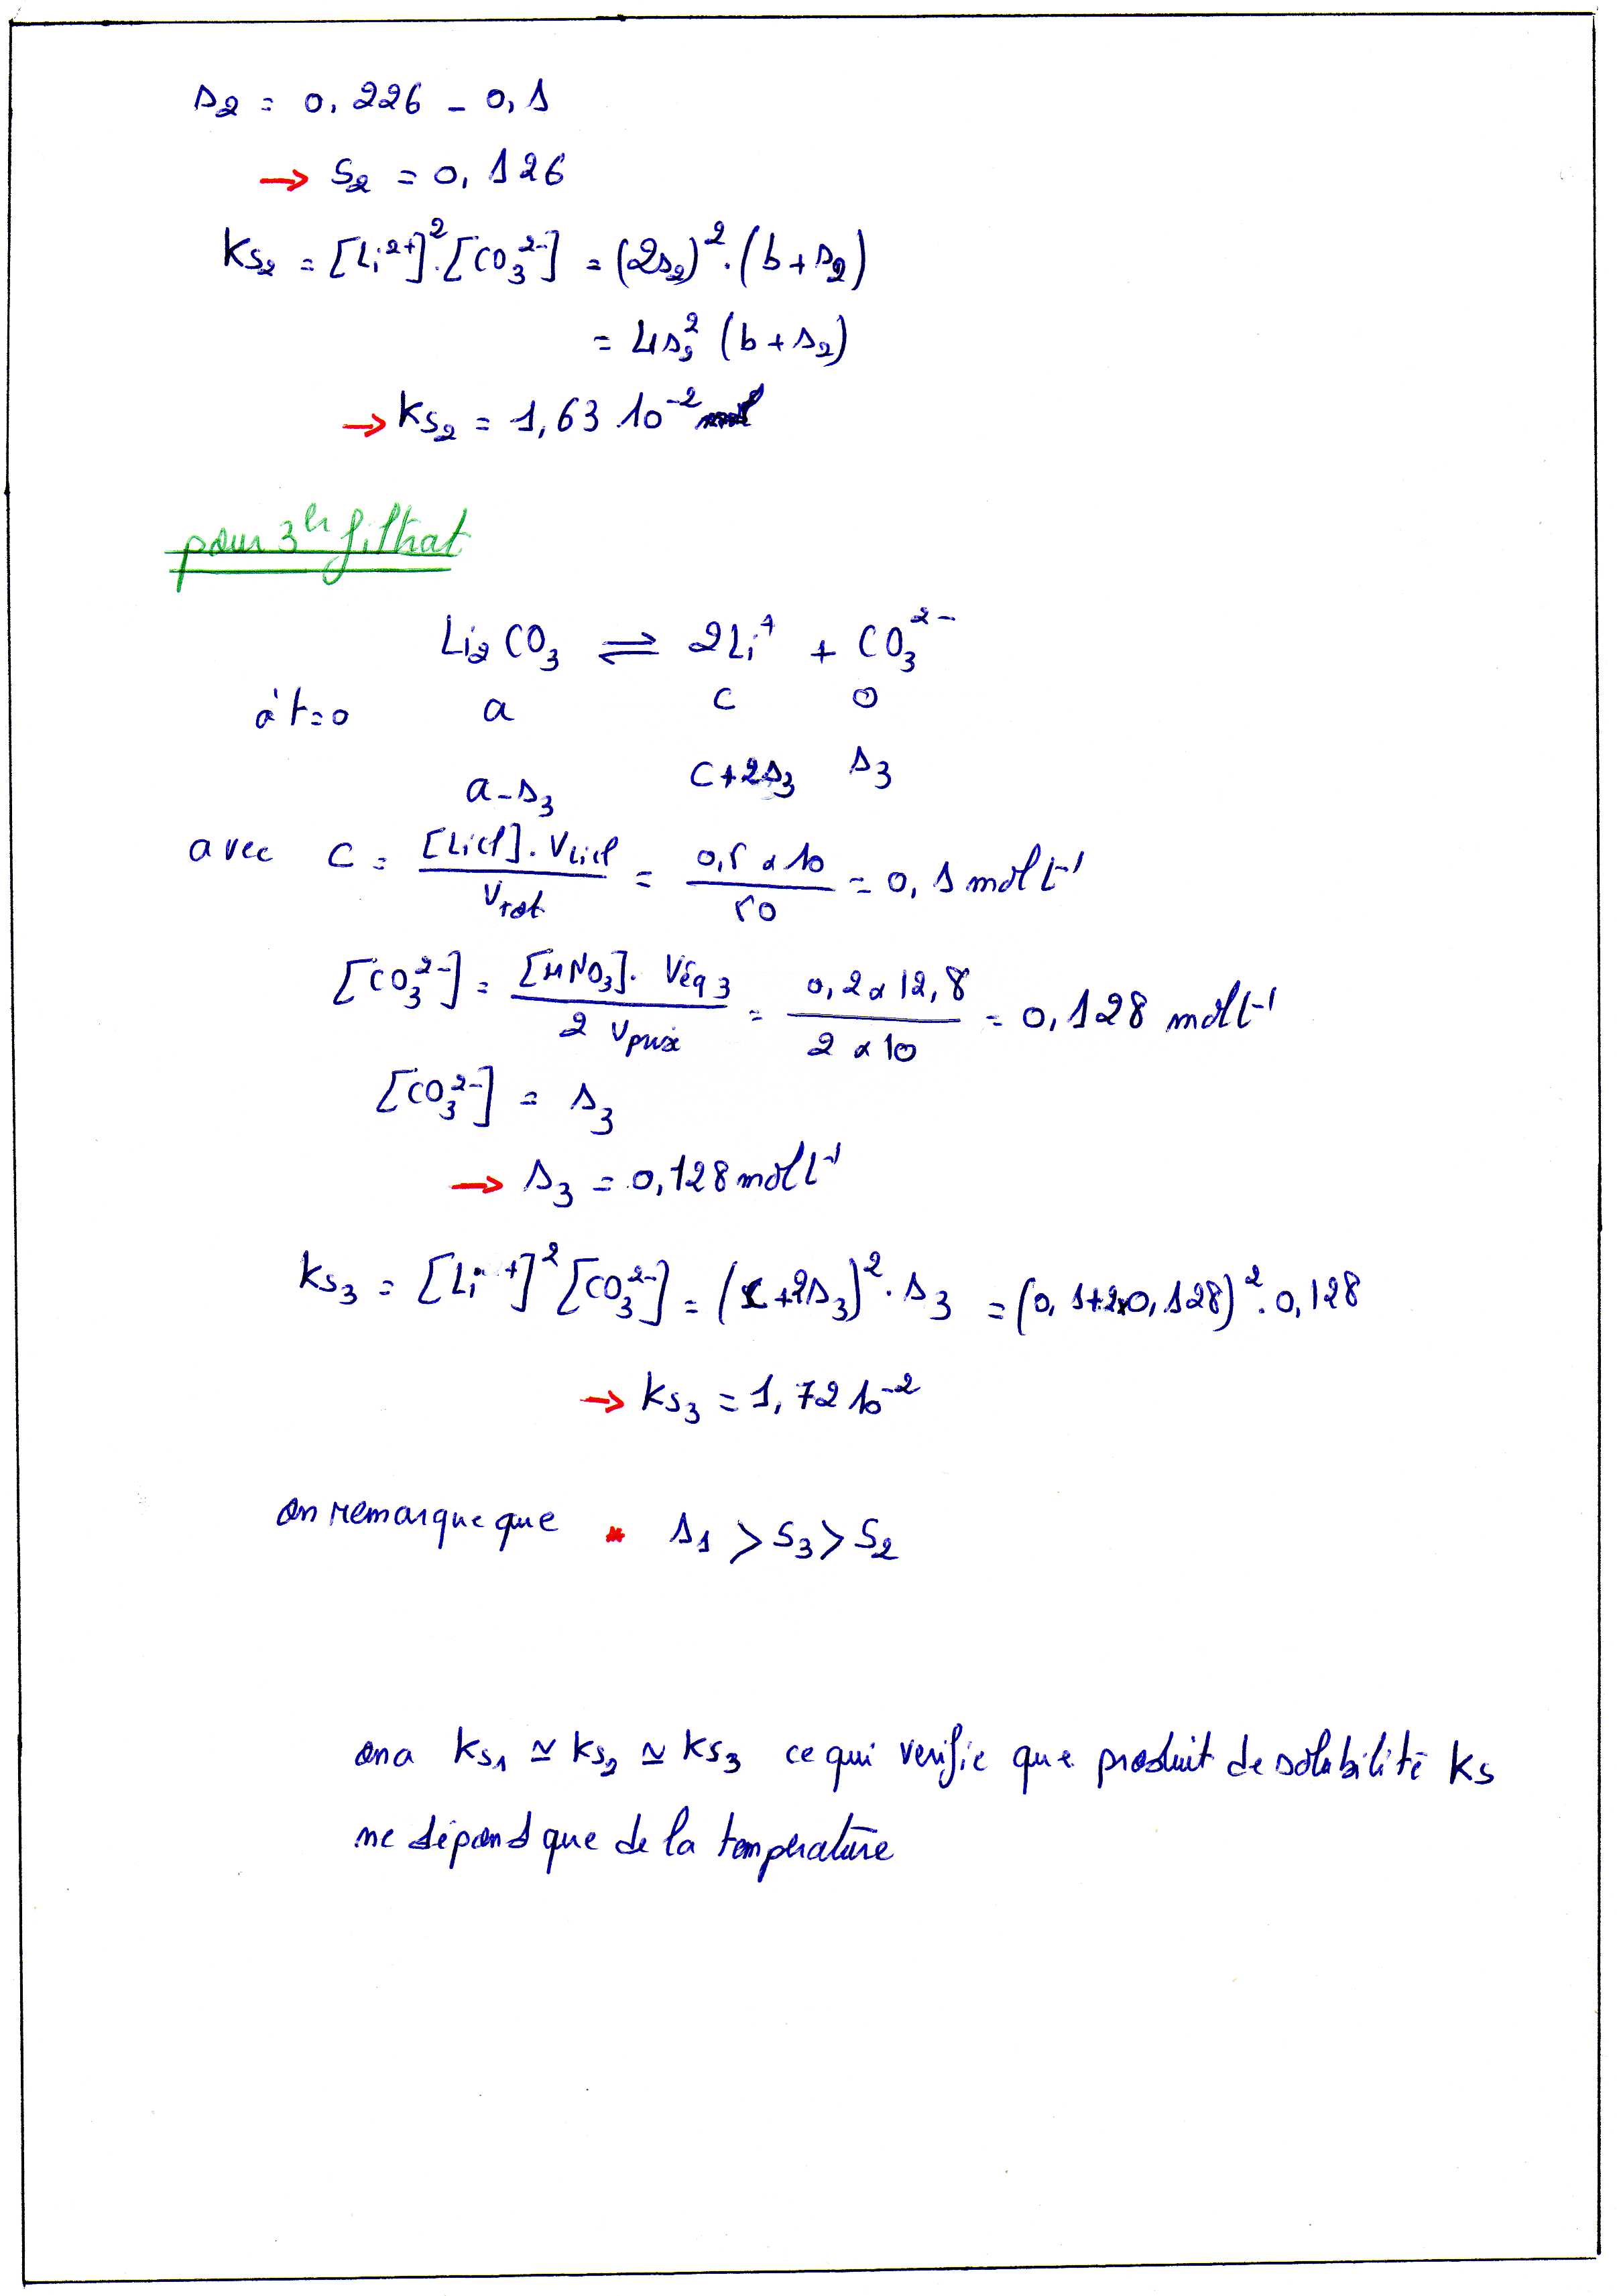 s₂ = 0,226 - 0,1
→ S₂ = 0,126
Ks₂ = [Li²⁺]².[CO₃²⁻] = (2s₂)².(b+s₂)
= 4s₂² (b+s₂)
→ Ks₂ = 1,63 10⁻²
pour 3ᵉ filtrat
Li₂CO₃ ⇌ 2Li⁺ + CO₃²⁻
à t=0 a c 0
a-s₃ c+2s₃ s₃
avec C = [LiCl].V_LiCl / V_tot = 0,5 x 10 / 50 = 0,1 mol L⁻¹
[CO₃²⁻] = [HNO₃]. Véq₃ / 2 V_prix = 0,2 x 12,8 / 2 x 10 = 0,128 mol L⁻¹
[CO₃²⁻] = s₃
→ s₃ = 0,128 mol L⁻¹
Ks₃ = [Li⁺]² [CO₃²⁻] = (c+2s₃)². s₃ = (0,1+2x0,128)². 0,128
→ Ks₃ = 1,72 10⁻²
on remarque que * s₁ > S₃ > S₂
on a Ks₁ ≃ Ks₂ ≃ Ks₃ ce qui verifie que produit de solubilité Ks
ne dépend que de la température